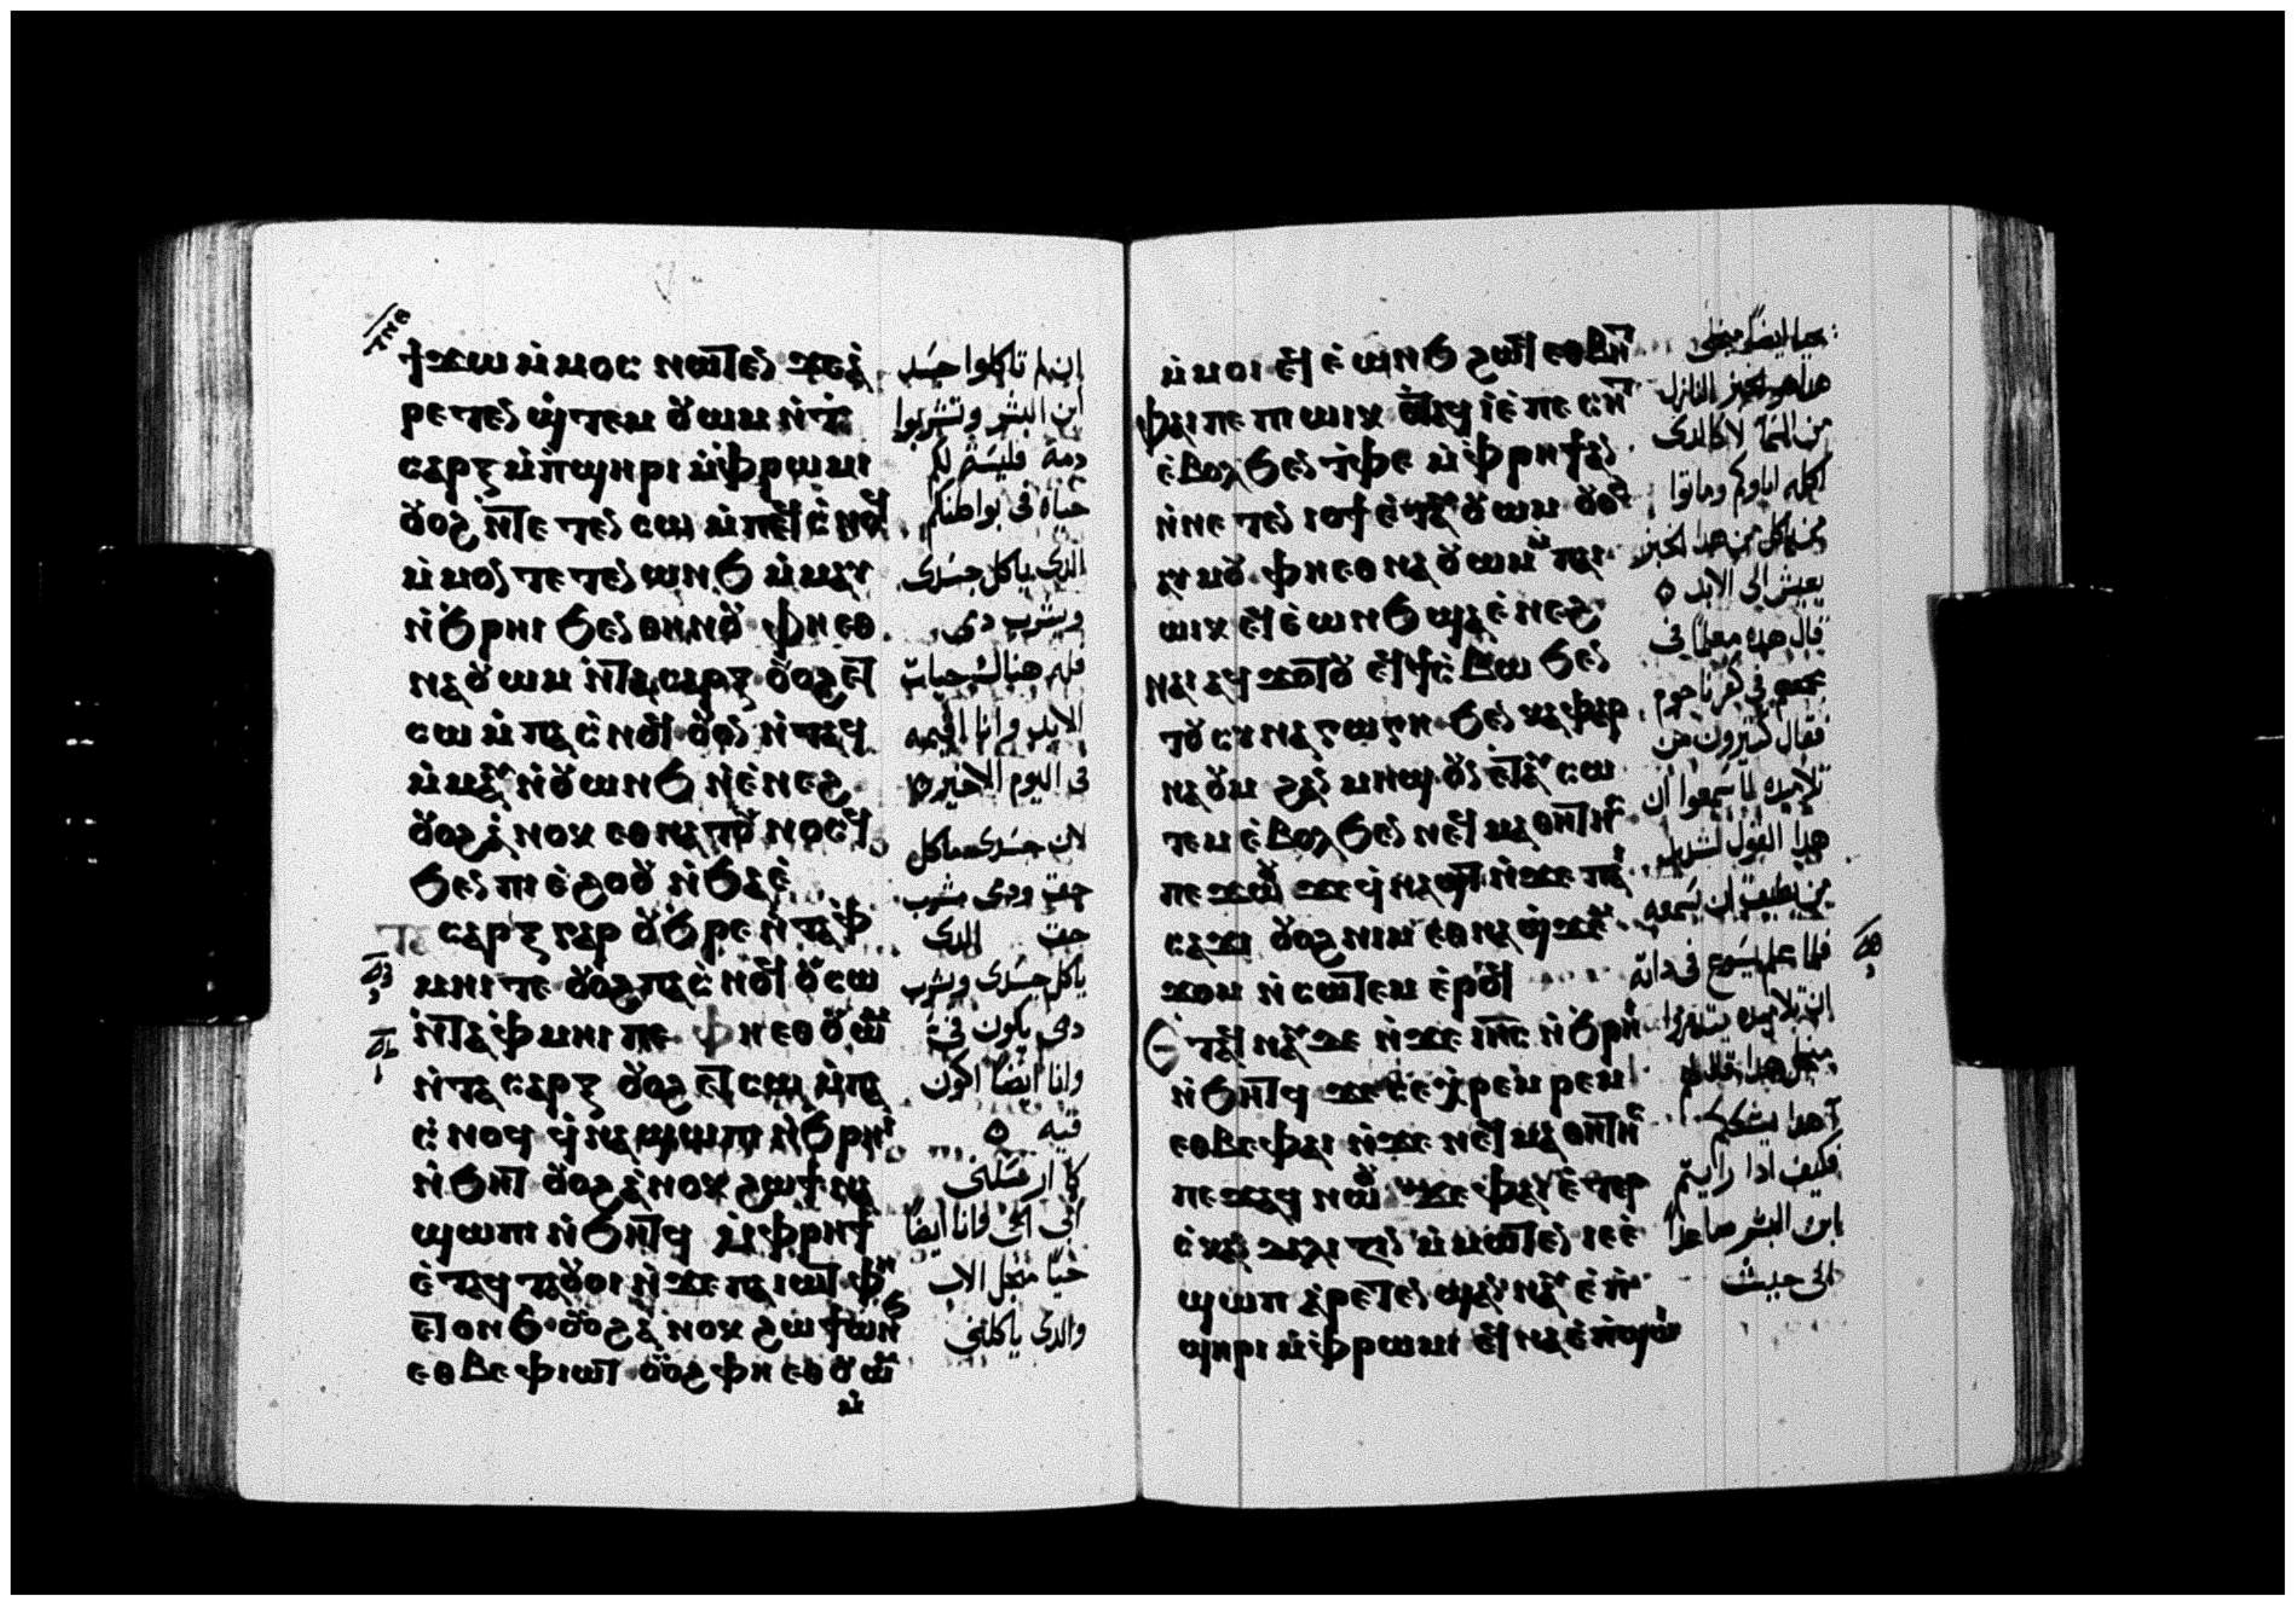 ϯϫⲱ ⲙ̇ⲙⲟⲥ ⲛⲱⲧⲉⲛ ϫⲉⲁ̇
ⲣⲉⲧⲉⲛ ϣ̇ⲧⲉⲙ ⲟⲩⲱⲙ ⲛ̇ⲧ̇
ⲥⲁⲣⲝ ⲙ̇ⲡ̇ϣⲏⲣⲓ ⲙ̇ⲫ̇ⲣⲱⲙⲓ
ⲟⲩⲟϩ ⲛ̇ⲧⲉ ⲧⲉⲛ ⲥⲱ ⲙ̇ⲡⲉϥⲥ̇ⲛⲟϥ
ⲙ̇ⲙⲟⲛ ⲧⲉ ⲧⲉⲛ ⲱⲛϧ ⲙ̇ⲙⲁⲩ
ⲛ̇ϧⲣⲏⲓ ϧⲉⲛ ⲑⲏⲛⲟⲩ ⲫⲏ ⲉⲑ
ⲛⲁⲟⲩⲱⲙ ⲛ̇ⲧⲁⲥⲁⲣⲝ ⲟⲩⲟϩ ⲉⲧ
ⲥⲱ ⲙ̇ⲡⲁⲥ̇ⲛⲟϥ ⲟⲩⲟⲛ ⲛ̇ⲧⲁϥ
ⲙ̇ⲙⲁⲩ ⲛ̇ⲟⲩⲱⲛϧ ⲛ̇ⲉ̇ⲛⲉϩ
ⲟⲩⲟϩ ⲁ̇ⲛⲟⲕ ⲉⲑⲛⲁⲧⲟⲩⲛⲟⲥϥ
ϧⲉⲛ ⲡⲓⲉ̇ϩⲟⲟⲩ ⲛ̇ϧⲁⲉ̇
ⲧⲁ ⲥⲁⲣⲝ ⲅⲁⲣ ⲟⲩϧ̇ⲣⲉ ⲛ̇ⲧⲁⲫ̇
ⲙⲏⲓ ⲧⲉ ⲟⲩⲟϩ ⲡⲁⲥ̇ⲛⲟϥ ⲟⲩⲥⲱ
ⲛ̇ⲧⲁⲫ̇ⲙⲏⲓ ⲡⲉ ⲫⲏ ⲉⲑⲟⲩⲱⲙ
ⲛ̇ⲧⲁⲥⲁⲣⲝ ⲟⲩⲟϩ ⲉⲧⲥⲱ ⲙ̇ⲡⲁ
ⲥ̇ⲛⲟϥ ϥ̇ⲛⲁϣⲱⲡⲓ ⲛ̇ϧⲣⲏⲓ
ⲛ̇ϧⲏⲧ ⲟⲩⲟϩ ⲁ̇ⲛⲟⲕ ϩⲱ ϯⲛⲁ
ϣⲱⲡⲓ ⲛ̇ϧⲏⲧϥ ⲙ̇ⲫ̇ⲣⲏϯ
ⲉ̇ⲧⲁϥⲧⲁⲟⲩⲟⲓ ⲛ̇ϫⲉ ⲡⲁⲓⲱⲧ ⲫⲏ
ⲉⲧⲟⲛϧ ⲟⲩⲟϩ ⲁ̇ⲛⲟⲕ ϩⲱ ϯⲱⲛϧ
ⲉⲑⲃⲉ ⲫⲓⲱⲧ ⲟⲩⲟϩ ⲫⲏ ⲉⲑⲟⲩⲱⲙ
ⲙ̇
ان لم تاكلوا جسد
ابن البشر وتشربوا
دمه فليس لكم
حياه فى بواطنكم
الذى ياكل جسدى
ويشرب دمى
فله هناك حيات
الابد وانا اقيمه
فى اليوم الاخير
لان جسدى ماكل
حق ودمى مشرب
حق الذى
ياكل جسدى ويشرب
دمى يكون فى
وانا ايضا اكون
فيه
كما ارسلنى
ابى الحى وانا ايضا
حيا من اجل الاب
والذى ياكلنى
ⲙ̇ⲙⲟⲓ ⲉϥⲉ̇ⲱⲛϧ ϩⲱϥ ⲉⲑⲃⲏⲧ
ⲫⲁⲓ ⲡⲉ ⲡⲓ ⲱⲓⲕ ⲉ̇ⲧⲁϥⲓ̇ ⲉ̇ⲡⲉⲥⲏⲧ
ⲉ̇ⲃⲟⲗ ϧⲉⲛ ⲧ̇ⲫⲉ ⲙ̇ⲫ̇ⲣⲏϯ ⲁⲛ
ⲛ̇ⲛⲉⲧⲉⲛ ⲓⲟϯ ⲉ̇ⲧⲁⲩⲟⲩⲱⲙ ⲟⲩⲟϩ
ⲁⲩⲙⲟⲩ ⲫⲏ ⲉⲑⲛⲁⲟⲩⲱⲙ ⲙ̇ⲡⲁⲓ
ⲱⲓⲕ ⲉϥⲉ̇ⲱⲛϧ ϣⲁⲉ̇ⲛⲉϩ
ⲛⲁⲓ ⲁϥϫⲟⲧⲟⲩ ⲉϥϯⲥ̇ⲃⲱ ϧⲉⲛ
ⲧⲟⲩⲥⲩⲛⲁⲅⲱⲅⲏ ϧⲉⲛ ⲕⲁⲫⲁⲣ
ⲛⲁⲟⲩⲙ ϩⲁⲛ ⲙⲏϣ ⲟⲩⲛ ⲉ̇ⲧⲁⲩⲥⲱ
ⲧⲉⲙ ⲉ̇ⲃⲟⲗ ϧⲉⲛ ⲛⲉϥⲙⲁⲑⲏⲧⲏⲥ
ⲡⲉϫⲱⲟⲩ ϫⲉ ϥ̇ⲛⲁϣⲧ ⲛ̇ϫⲉ ⲡⲁⲓ
ⲥⲁϫⲓ ⲟⲩⲟϩ ⲛⲓⲙ ⲉⲑⲛⲁϣ̇ϫⲉⲙ
ϫⲟⲙ ⲛ̇ⲥⲱⲧⲉⲙ ⲉ̇ⲣⲟϥ
ⲉ̇ⲧⲁϥⲛⲁⲩ ⲇⲉ ⲛ̇ϫⲉ ⲓⲏⲥ ⲛ̇ϧⲣⲏⲓ
ⲛ̇ϧⲏⲧϥ ϫⲉ ⲥⲉⲭ̇ⲣⲉⲙⲣⲉⲙ
ⲉⲑⲃⲉ ⲫⲁⲓ ⲛ̇ϫⲉ ⲛⲉϥⲙⲁⲑⲏⲧⲏⲥ
ⲡⲉϫⲁϥ ⲛⲱⲟⲩ ϫⲉ ⲫⲁⲓ ⲉⲧⲉⲣ
ⲥ̇ⲕⲁⲛⲇⲁⲗⲓⲍⲓⲛ ⲙ̇ⲙⲱⲧⲉⲛ ⲓⲉ ⲉ̇
ϣⲱⲡ ⲁ̇ⲣⲉⲧⲉⲛ ϣⲁⲛⲛⲁⲩ ⲉ̇ⲡ̇
ϣⲏⲣⲓ ⲙ̇ⲫ̇ⲣⲱⲙⲓ ⲉϥⲛⲁ ⲉ̇ⲡ̇ϣⲱⲓ
يحيا ايضا من اجلى
هذا هو الخبز النازل
من السما لا كالذى
اكله اباوكم وماتوا
من ياكل من هذا الخبز
يعيش الى الابد
قال هذه معلما فى
مجمعهم فى كفرناحوم
فقال كثيرون من
تلاميذه لما سمعوا ان
هذا القول لشديد
من يطيق ان يسمعه
فلما علم يسوع فى ذاته
ان تلاميذه
من اجل هذا قال لهم
اهذا يشككم
فكيف اذا رايتم
بابن البشر صاعدا
الى حيث